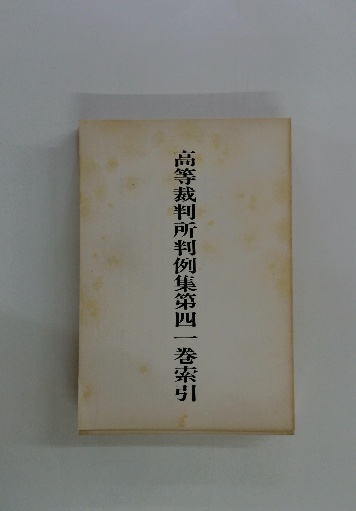 高等裁判所判例集第四一巻索引